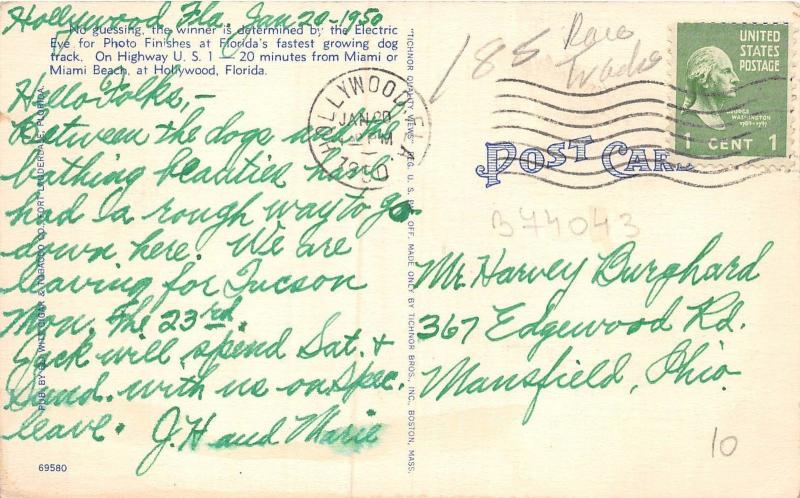 Hollywood Fla. Jan 20-1950
No guessing, the winner is determined by the Electric
Eye for Photo Finishes at Florida's fastest growing dog
track. On Highway U. S. 1 — 20 minutes from Miami or
Miami Beach, at Hollywood, Florida.
Hello Folks,-
Between the dogs and the
bathing beauties have
had a rough way to go
down here. We are
leaving for Tucson
Mon. The 23rd.
Jack will spend Sat. +
Sund. with us on Spec.
leave. J.H and Marie
69580
"TICHNOR QUALITY VIEWS" REG. U. S. PAT. OFF. MADE ONLY BY TICHNOR BROS., INC., BOSTON, MASS.
HOLLYWOOD, FLA.
JAN 20
PM
1950
185 Race
Tracks
UNITED
STATES
POSTAGE
GEORGE
WASHINGTON
1789-1797
1 CENT 1
POST CARD
B74043
Mr. Harvey Burghard
367 Edgewood Rd.
Mansfield, Ohio.
10